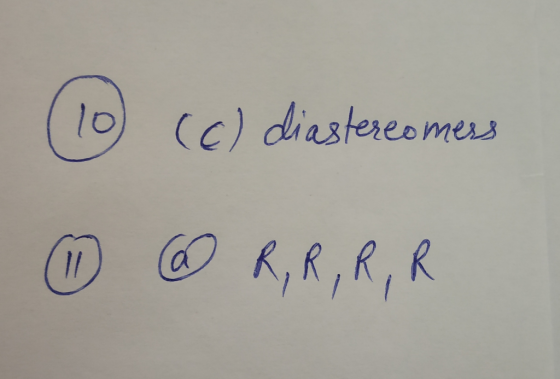 10 (c) diastereomers
11 a R, R, R, R